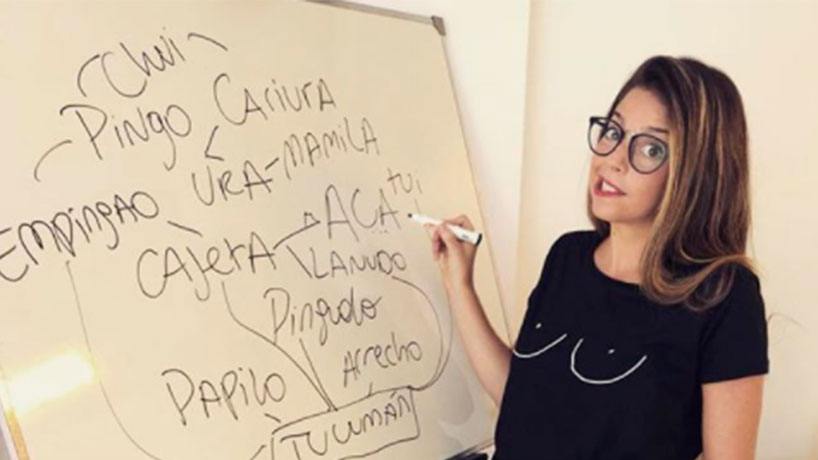 Chui
PINGO CARIURA
URA-MAMILA
EMPINGAO
TUI
CAJETA ACA
LANUDO
PINGUDO
Arrecho
PAPILO
TUCUMÁN